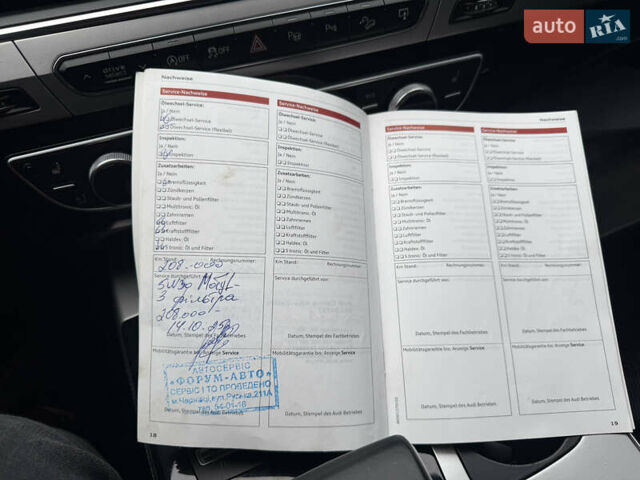 auto RIA.com
drive select
OFF
Nachweise
Service-Nachweise
Ölwechsel-Service:
Ja / Nein
Ölwechsel-Service
Ölwechsel-Service (flexibel)
Inspektion:
Ja / Nein
Inspektion
Zusatzarbeiten:
Ja / Nein
Bremsflüssigkeit
Zündkerzen
Staub- und Pollenfilter
Multitronic: Öl
Zahnriemen
Luftfilter
Kraftstofffilter
Haldex: Öl
S tronic: Öl und Filter
Km Stand: Rechnungsnummer:
208.000
Service durchgeführt von:
5W30
3 фільтра
208.000
14.10.25
Mobilitätsgarantie bis: Anzeige Service
АВТОСЕРВІС
«ФОРУМ-АВТО»
СЕРВІС І ТО ПРОВЕДЕНО
м.Чернівці, вул.Руська,211А
тел. 54-01-16
Datum, Stempel des Audi Betriebes
18
Service-Nachweise
Ölwechsel-Service:
Ja / Nein
Ölwechsel-Service
Ölwechsel-Service (flexibel)
Inspektion:
Ja / Nein
Inspektion
Zusatzarbeiten:
Ja / Nein
Bremsflüssigkeit
Zündkerzen
Staub- und Pollenfilter
Multitronic: Öl
Zahnriemen
Luftfilter
Kraftstofffilter
Haldex: Öl
S tronic: Öl und Filter
Km Stand: Rechnungsnummer:
Service durchgeführt von:
Datum, Stempel des Fachbetriebes
Mobilitätsgarantie bis: Anzeige Service
Datum, Stempel des Audi Betriebes
Nachweise
Service-Nachweise
Ölwechsel-Service:
Ja / Nein
Ölwechsel-Service
Ölwechsel-Service (flexibel)
Inspektion:
Ja / Nein
Inspektion
Zusatzarbeiten:
Ja / Nein
Bremsflüssigkeit
Zündkerzen
Staub- und Pollenfilter
Multitronic: Öl
Zahnriemen
Luftfilter
Kraftstofffilter
Haldex: Öl
S tronic: Öl und Filter
Km Stand: Rechnungsnummer:
Service durchgeführt von:
Datum, Stempel des Fachbetriebes
Mobilitätsgarantie bis: Anzeige Service
Datum, Stempel des Audi Betriebes
Service-Nachweise
Ölwechsel-Service:
Ja / Nein
Ölwechsel-Service
Ölwechsel-Service (flexibel)
Inspektion:
Ja / Nein
Inspektion
Zusatzarbeiten:
Ja / Nein
Bremsflüssigkeit
Zündkerzen
Staub- und Pollenfilter
Multitronic: Öl
Zahnriemen
Luftfilter
Kraftstofffilter
Haldex: Öl
S tronic: Öl und Filter
Km Stand: Rechnungsnummer:
Service durchgeführt von:
Datum, Stempel des Fachbetriebes
Mobilitätsgarantie bis: Anzeige Service
Datum, Stempel des Audi Betriebes
19